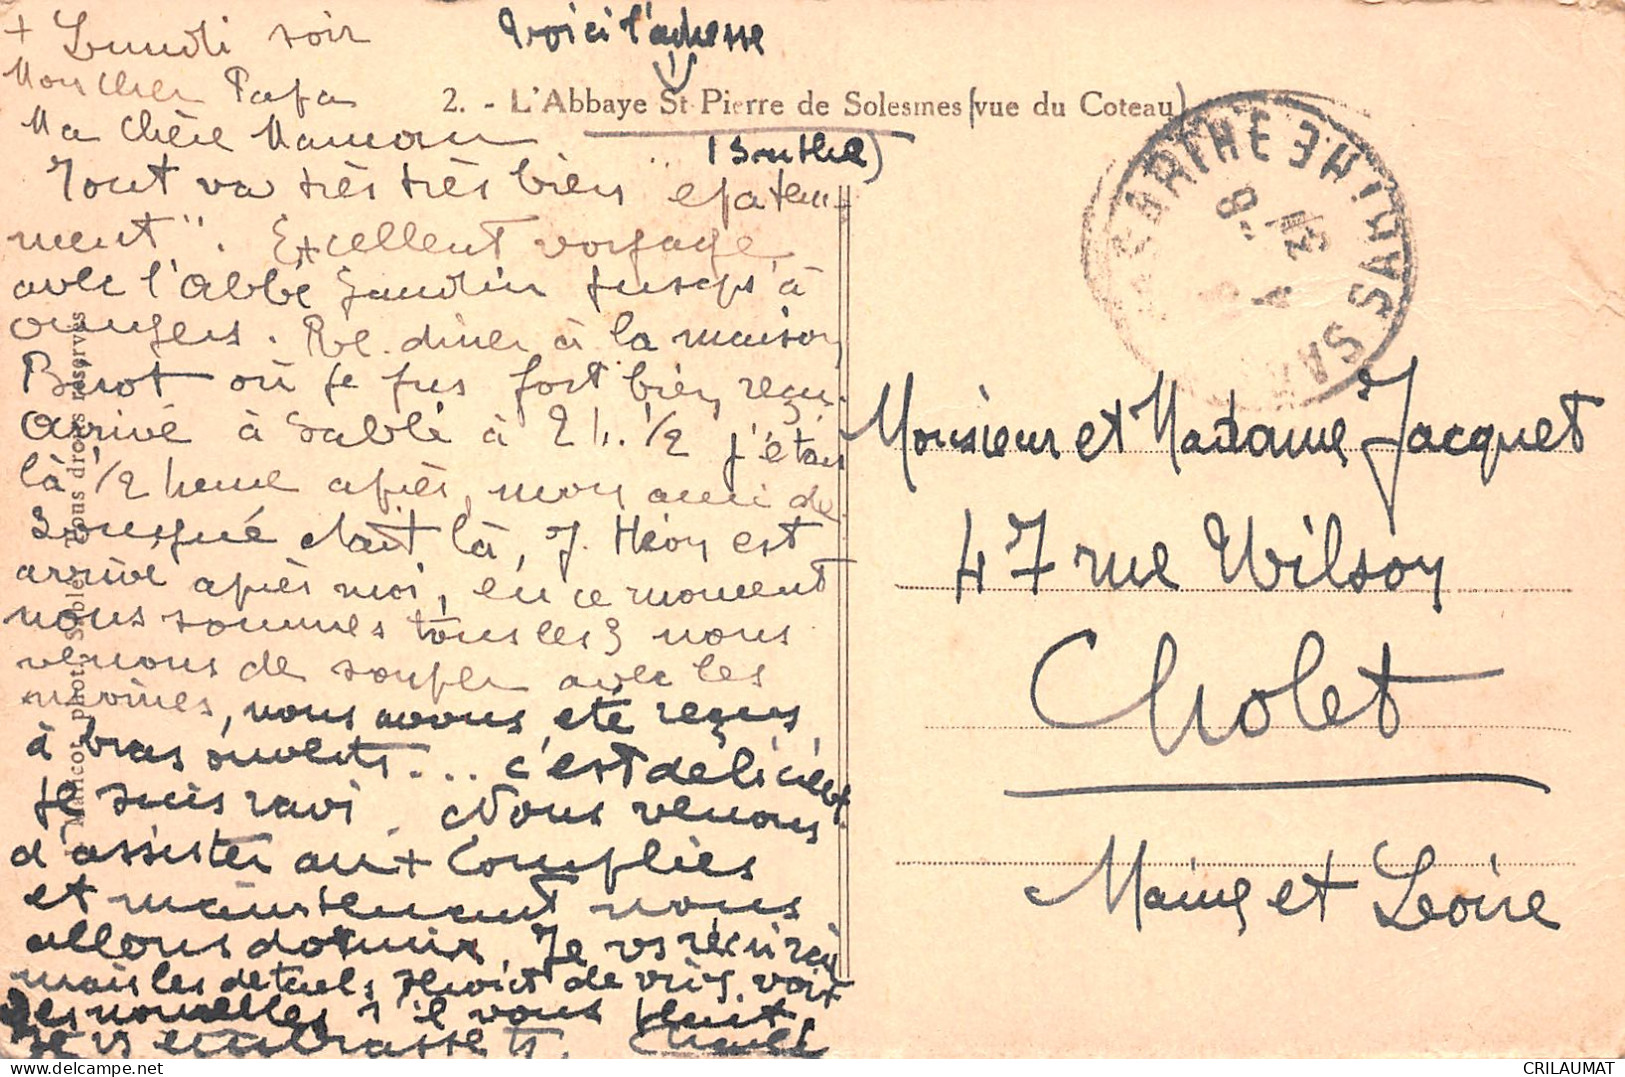 + Lundi soir
Mon cher Papa
Ma chère Maman
Tout va très très bien " epatem-
ment". Excellent voyage
avec l'abbé Gaudin jusqu'à
angers. Re. diner à la maison
où je fus fort bien reçu.
Arrivé à Sablé à 2 h. 1/2 j'étais
là 1/2 heure après, mon ami de
était là, J. Héon est
arrivé après moi, en ce moment
nous sommes tous les 3 nous
venons de souper avec les
moines, nous avons été reçus
à bras ouverts ... c'est délicieux
Je suis ravi. Nous venons
d'assister aux Complies
et maintenant nous
allons dormir. Je vs récrirai
mais les details de voir
des nouvelles s'il vous plait
Je vs embrasse
Voici l'adresse
2. - L'Abbaye St Pierre de Solesmes (vue du Coteau)
(Sarthe)
SABLÉ SARTHE
Monsieur et Madame Jacquet
47 rue Wilson
Cholet
Maine et Loire
phot. Sablé. Tous droits réservés
CRILAUMAT